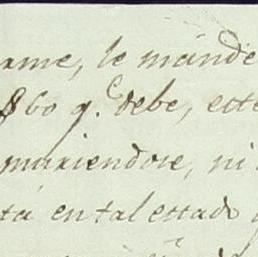 rme, le mánde
$60 q.e debe, este
muriendose, ni
tá en tal estado